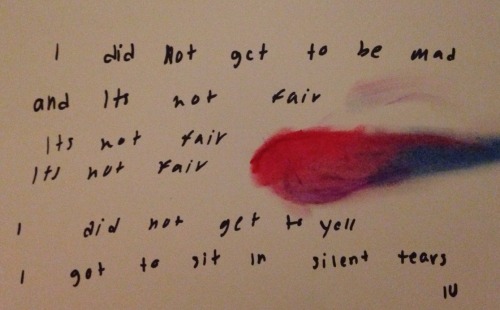 I did Not get to be mad
and Its not fair
Its not fair
Its not fair
I did not get to yell
I got to sit in silent tears
IU